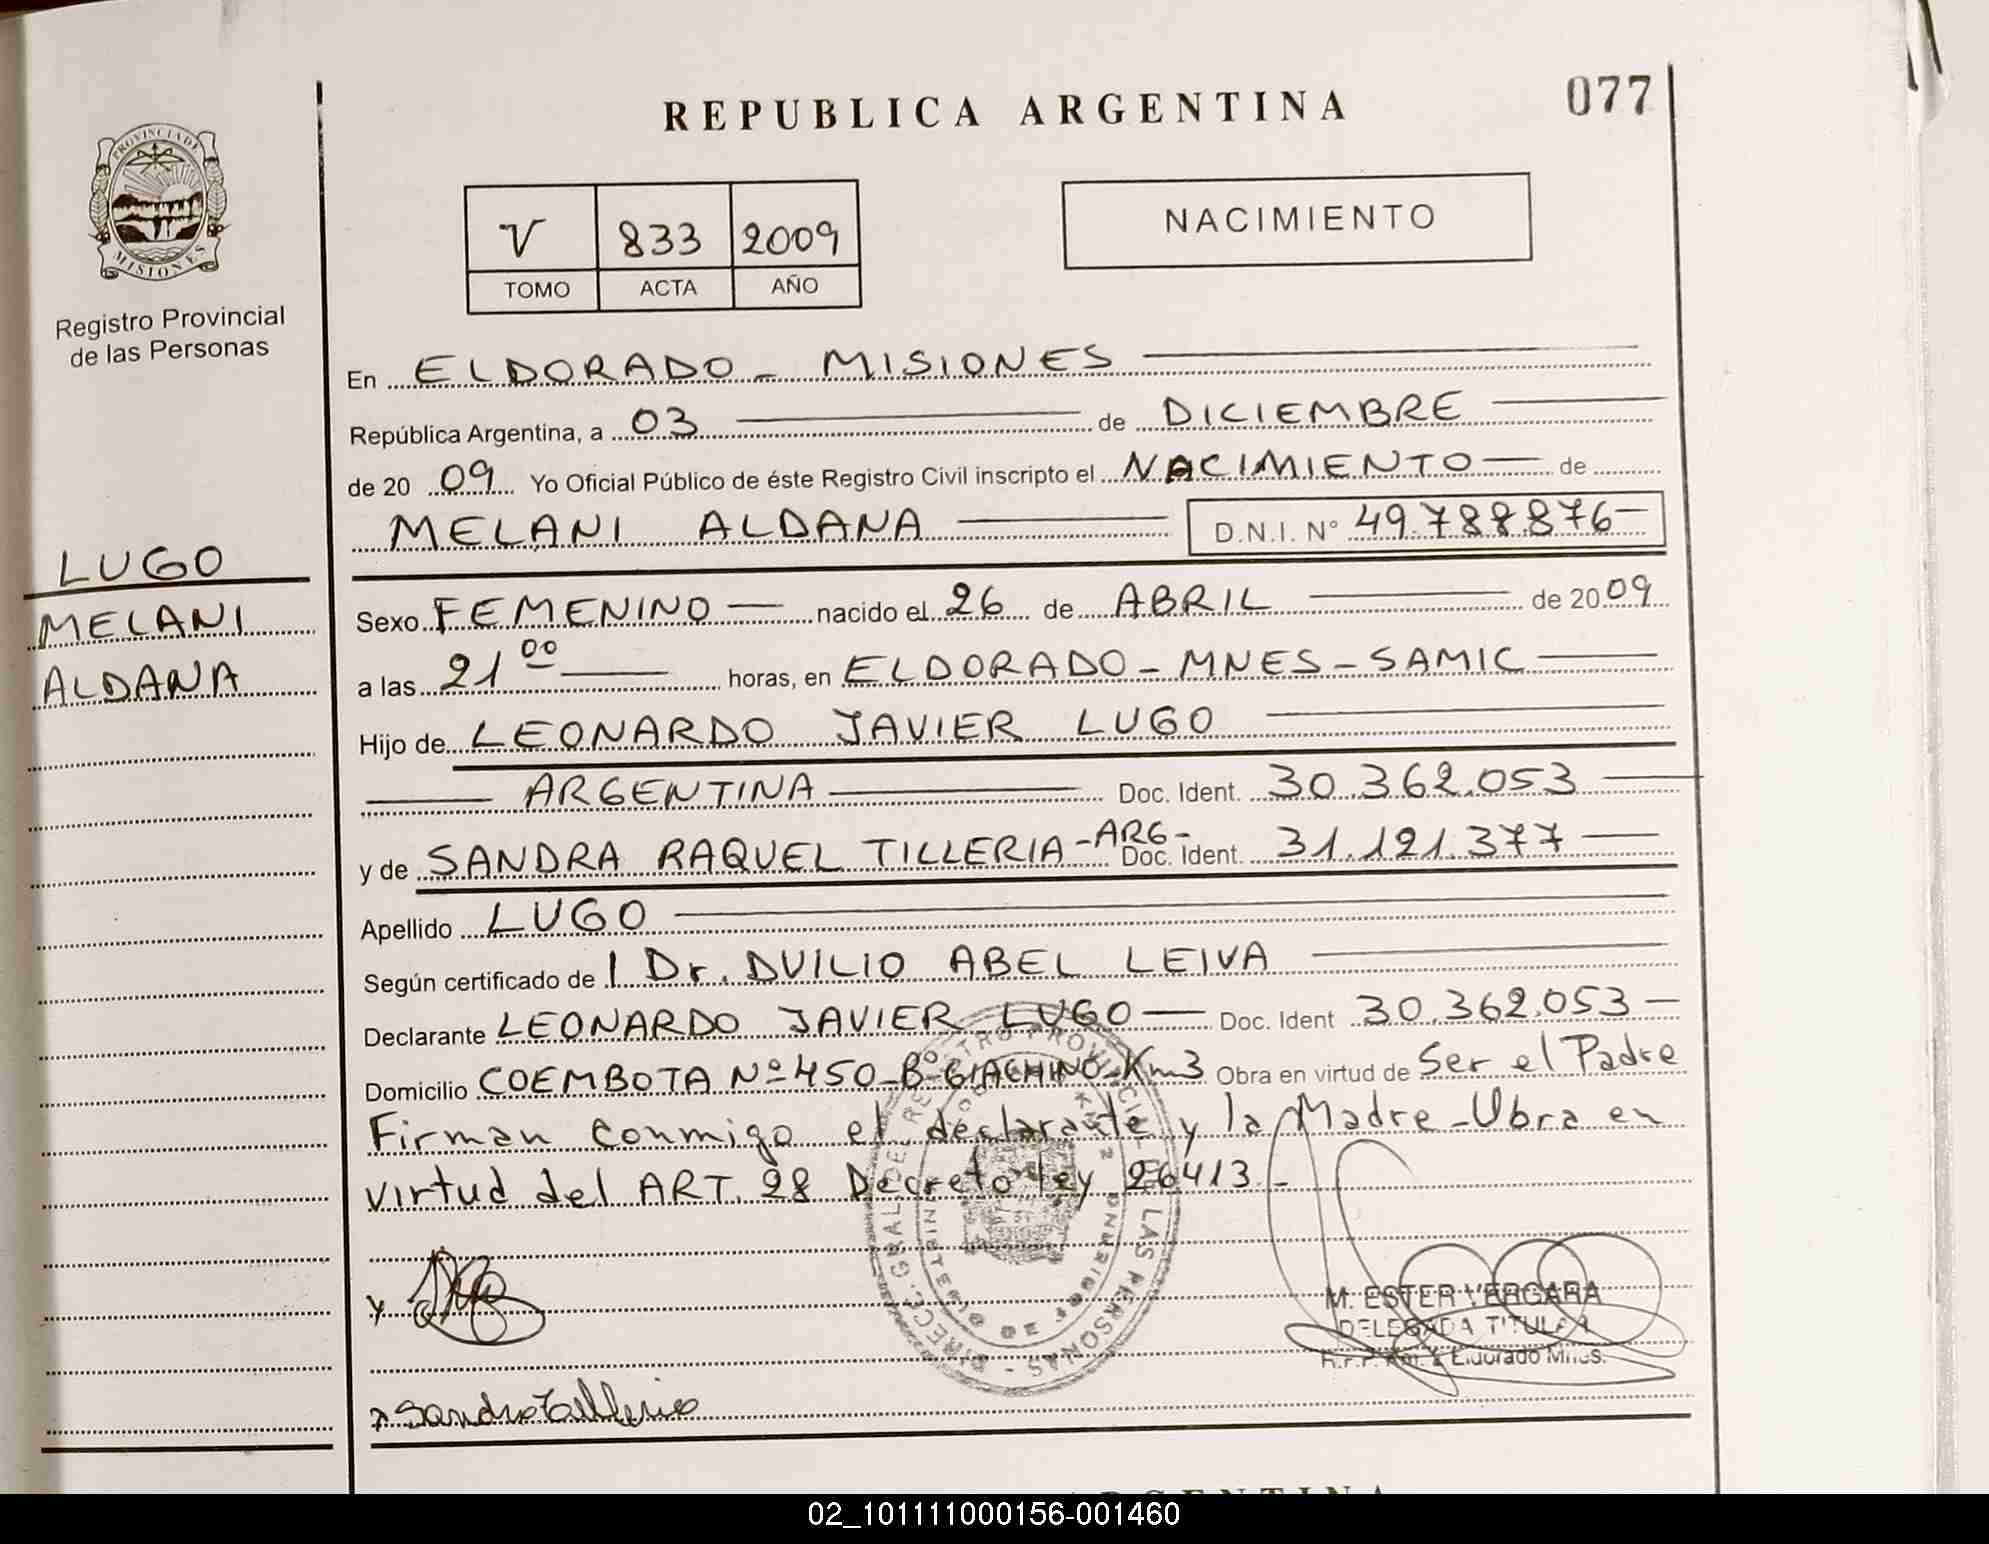 REPUBLICA ARGENTINA
077
PROVINCIA DE
MISIONES
Registro Provincial
de las Personas
V 833 2009
TOMO ACTA AÑO
NACIMIENTO
En ELDORADO - MISIONES
República Argentina, a 03 de DICIEMBRE
de 20 09 Yo Oficial Público de éste Registro Civil inscripto el NACIMIENTO de
MELANI ALDANA D.N.I. N° 49.788.876-
LUGO
MELANI
ALDANA
Sexo FEMENINO nacido el 26 de ABRIL de 20 09
a las 21 00 horas, en ELDORADO - MNES - SAMIC
Hijo de LEONARDO JAVIER LUGO
ARGENTINA Doc. Ident. 30.362.053
y de SANDRA RAQUEL TILLERIA - ARG - Doc. Ident. 31.121.377
Apellido LUGO
Según certificado de l Dr. DUILIO ABEL LEIVA
Declarante LEONARDO JAVIER LUGO Doc. Ident 30.362.053
Domicilio COEMBOTA Nº 450 - Bº GIACHINO - Km3 Obra en virtud de Ser el Padre
Firman conmigo el declarante y la Madre - Obra en
virtud del ART. 28 Decreto ley 26413 -
DIRECC. GRAL. DE REGISTRO PROVINCIAL DE LAS PERSONAS
MINISTERIO DE
M. ESTER VERGARA
DELEGADA TITULAR
Eldorado Mnes.
Sandra Tilleria
ARGENTINA
02_101111000156-001460